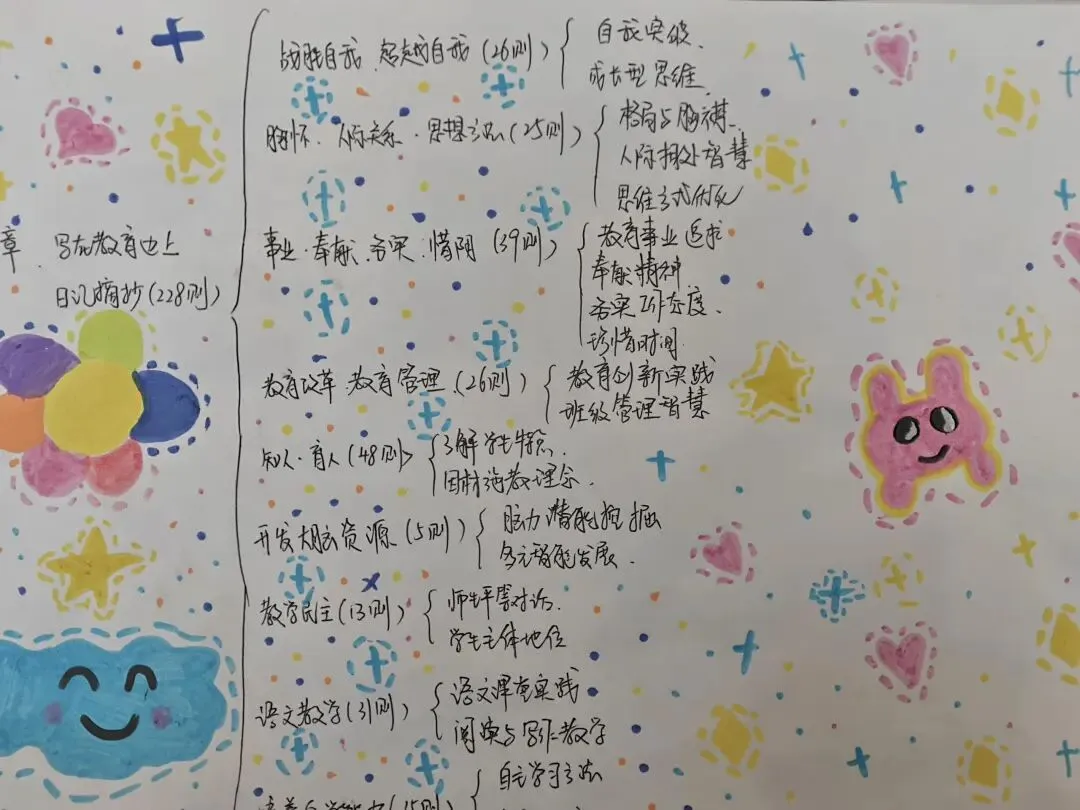 战胜自我 超越自我(26则)
自我突破、
成长型思维、
胸怀·人际关系·思想方法(25则)
格局与胸襟、
人际相处智慧
思维方式优化
章、写在教育边上
日记摘抄(228则)
事业·奉献·务实·惜阴(39则)
教育事业追求
奉献精神
务实工作态度、
珍惜时间、
教育改革 教育管理(26则)
教育创新实践
班级管理智慧
知人·育人(48则)
了解学生特点、
因材施教理念、
开发大脑资源(5则)
脑力潜能挖掘
多元智能发展、
教学民主(13则)
师生平等对话、
学生主体地位
语文教学(31则)
语文课堂实践
阅读与写作教学
培养自学能力(15则)
自主学习方法